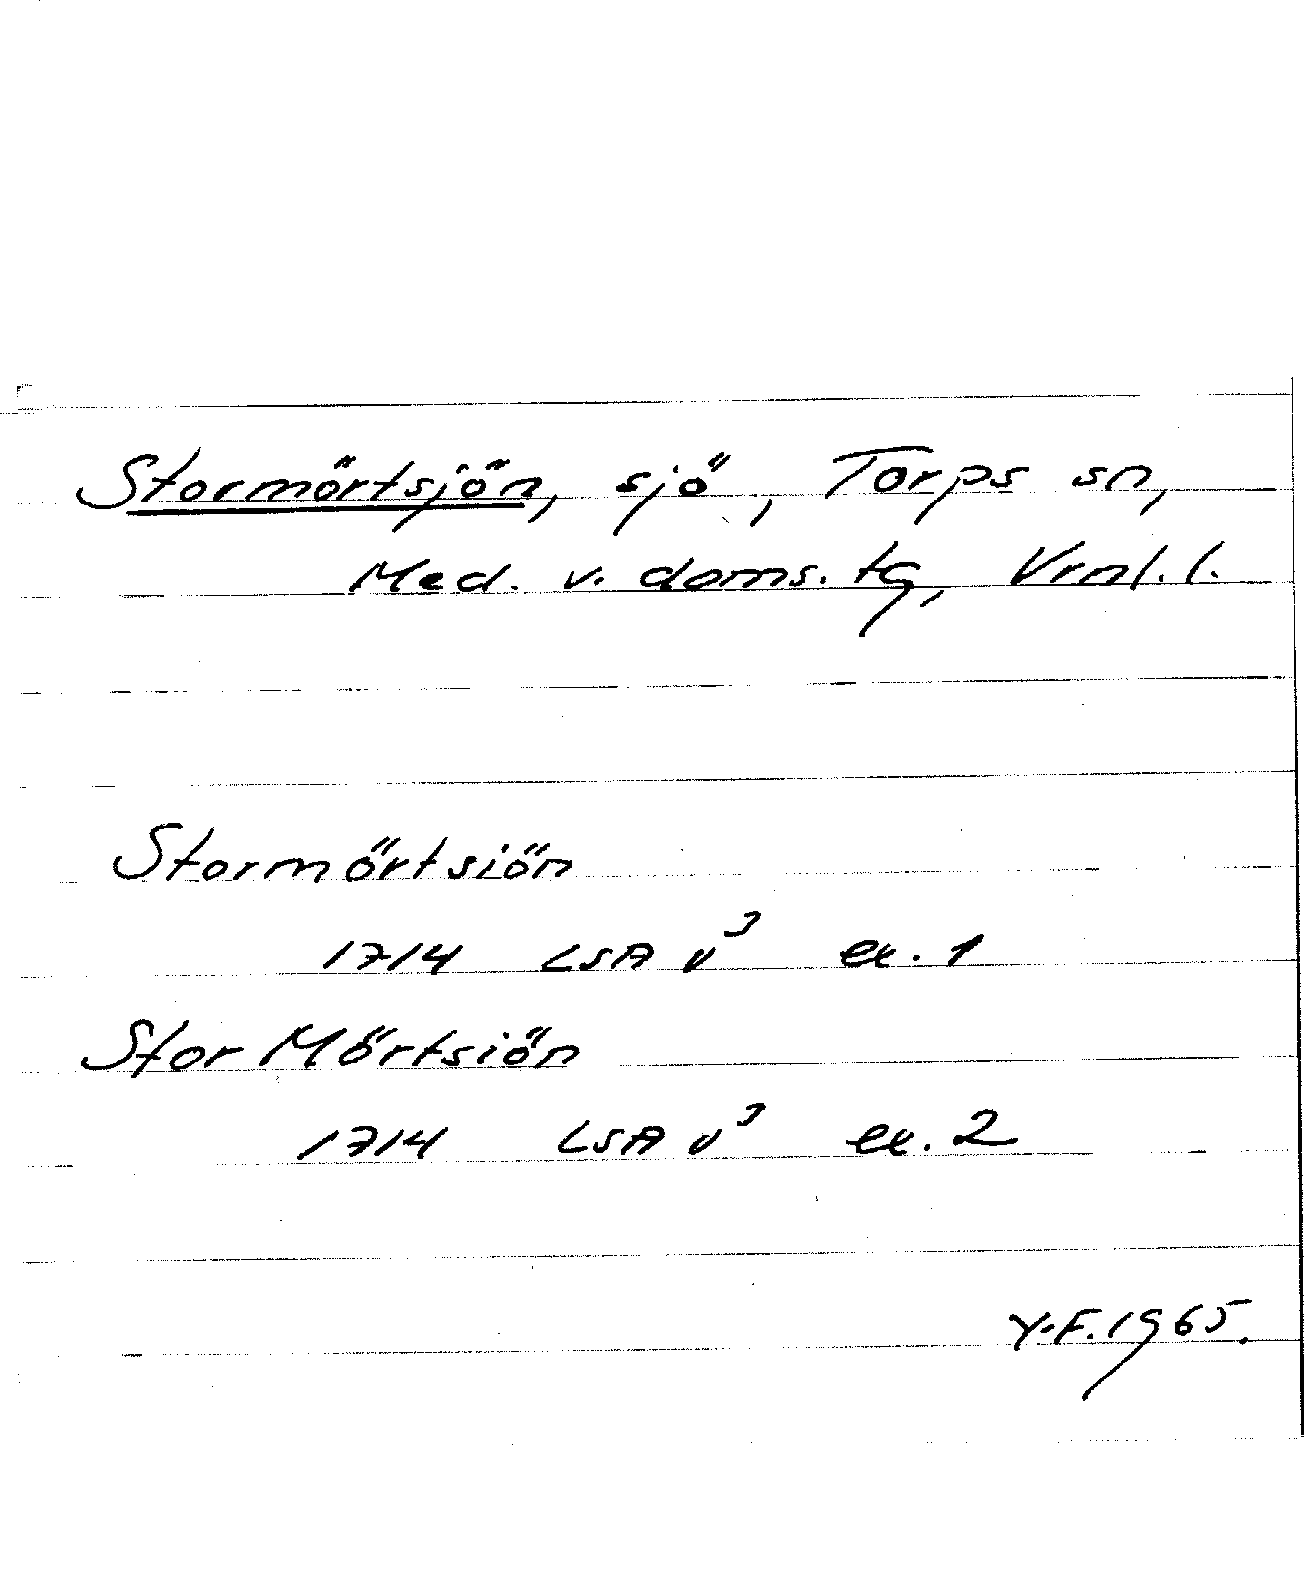 Stormörtsjön, sjö, Torps sn,
Med. v. doms. tg, Vrnl. l.
Stormörtsiön
1714 LSA v³ ex. 1
Stor Mörtsiön
1714 LSA v³ ex. 2
Y.F. 1965.